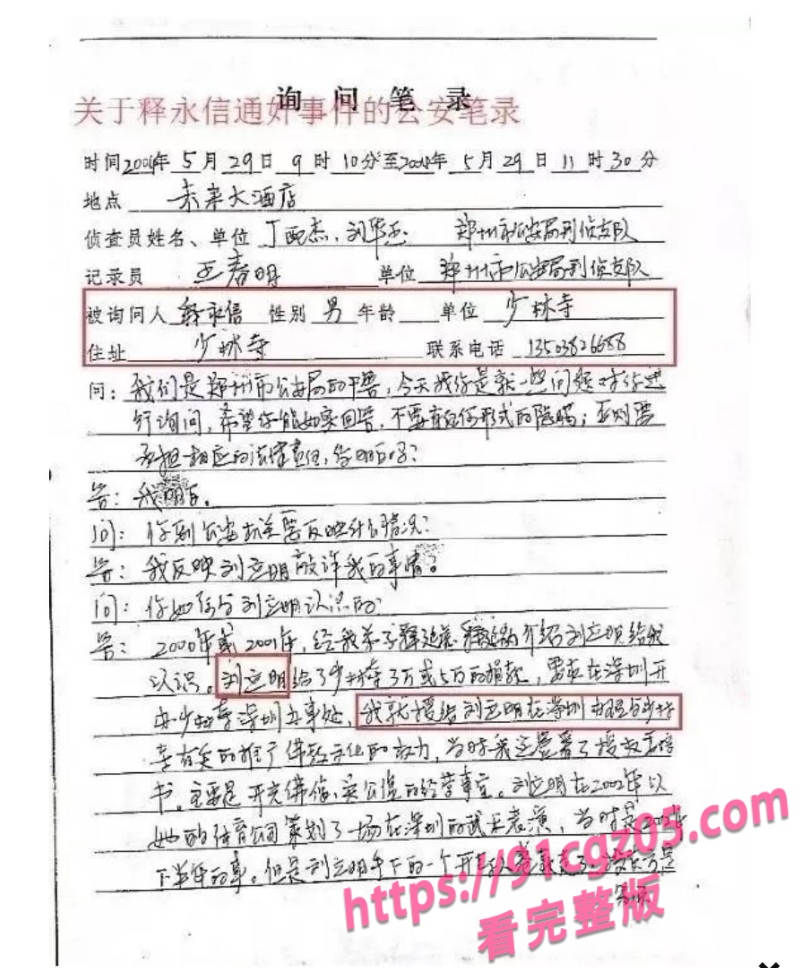 询问笔录
关于释永信通奸事件的公安笔录
时间2004年5月29日9时10分至2004年5月29日11时30分
地点 未来大酒店
侦查员姓名、单位 郑州市公安局刑侦支队
记录员 单位 郑州市公安局刑侦支队
被询问人 释永信 性别 男 年龄 单位 少林寺
住址 少林寺 联系电话 13503826688
问:我们是郑州市公安局的干警,今天我们是就一些问题对你进
行询问,希望你能如实回答,不要有任何形式的隐瞒;否则要
承担相应的法律责任,你明白吗?
答:我明白。
问:你到公安机关要反映什么情况?
答:我反映刘立明敲诈我的事情。
问:你如何与刘立明认识的?
答:2000年或2001年,经我弟子 介绍刘立明给我
认识。刘立明给了少林寺3万或5万的捐款,要求在深圳开
办少林寺深圳办事处,我就授给刘立明在深圳办理与少林
寺有关的推广佛教文化的权力,当时我还签署了授权委托
书。主要是开光佛像、 的经营事宜。刘立明在2002年以
她的体育公司策划了一场在深圳的武术表演,当时是2002年
下半年的事。但是刘立明手下的一个
https://91cgz05.com
看完整版